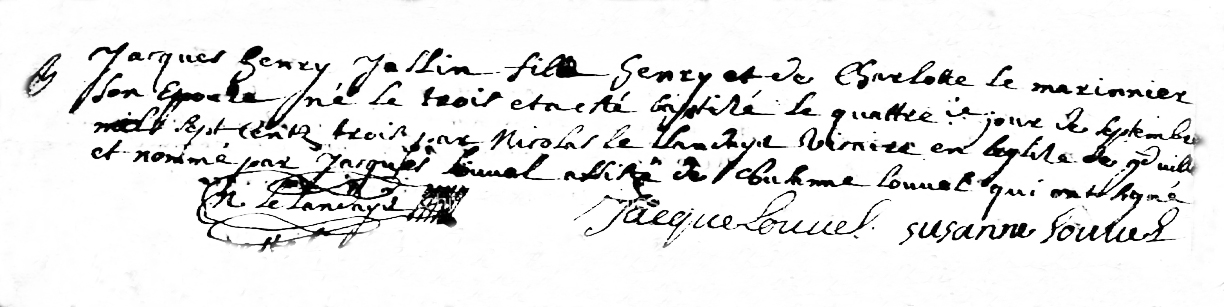 B Jacques Henry Jallin fils Henry et de Charlotte le marinnier
son Epouse né le trois et a esté baptisé le quattre ie jour de septembre
mile sept centz trois par Nicolas le Vicaire en leglise de gd ville
et nommé par Jacques Louvel assisté de Susanne Louvel qui ont signé
Jacque Louvel susanne Louvel